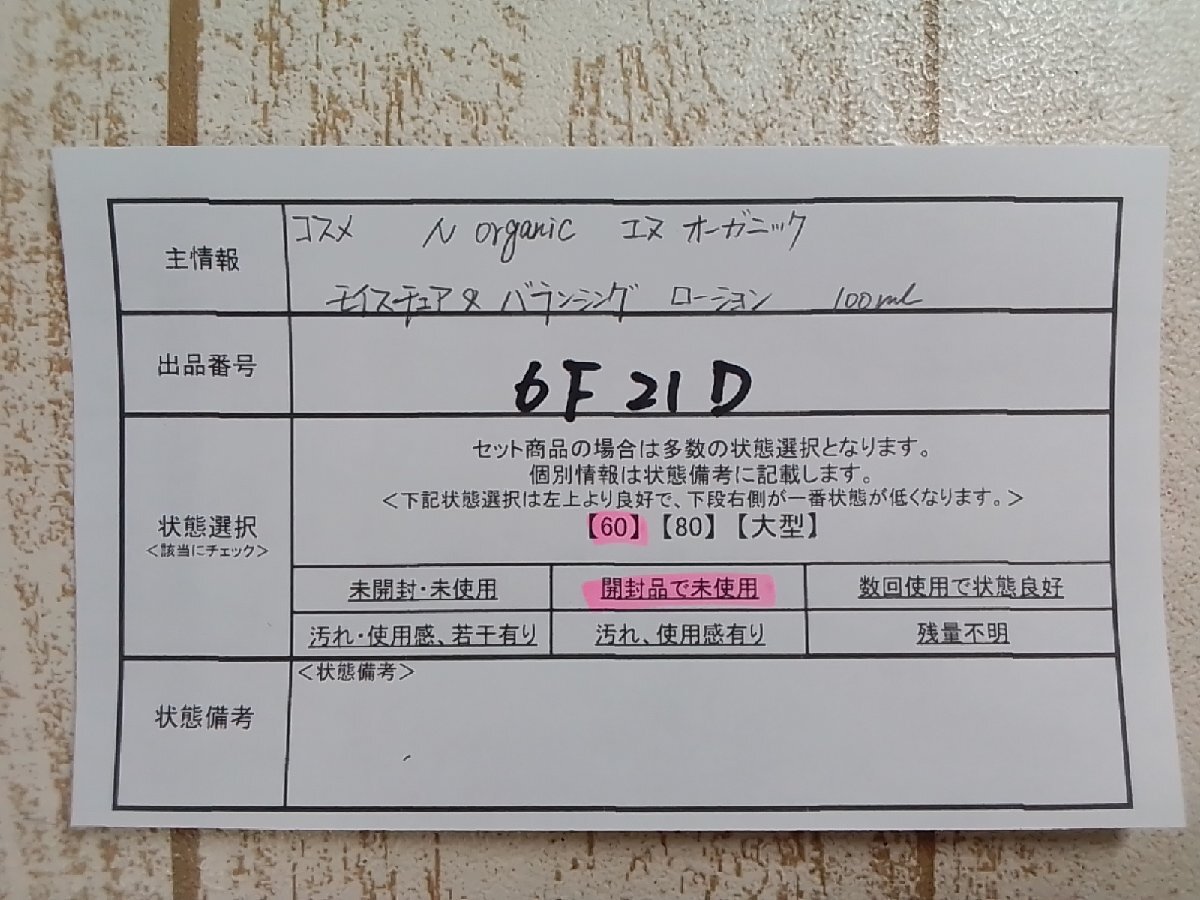 主情報
コスメ N organic エヌ オーガニック
モイスチュア& バランシング ローション 100ml
出品番号
6F21D
状態選択
<該当にチェック>
セット商品の場合は多数の状態選択となります。
個別情報は状態備考に記載します。
<下記状態選択は左上より良好で、下段右側が一番状態が低くなります。>
【60】【80】【大型】
未開封・未使用 開封品で未使用 数回使用で状態良好
汚れ・使用感、若干有り 汚れ、使用感有り 残量不明
状態備考
<状態備考>